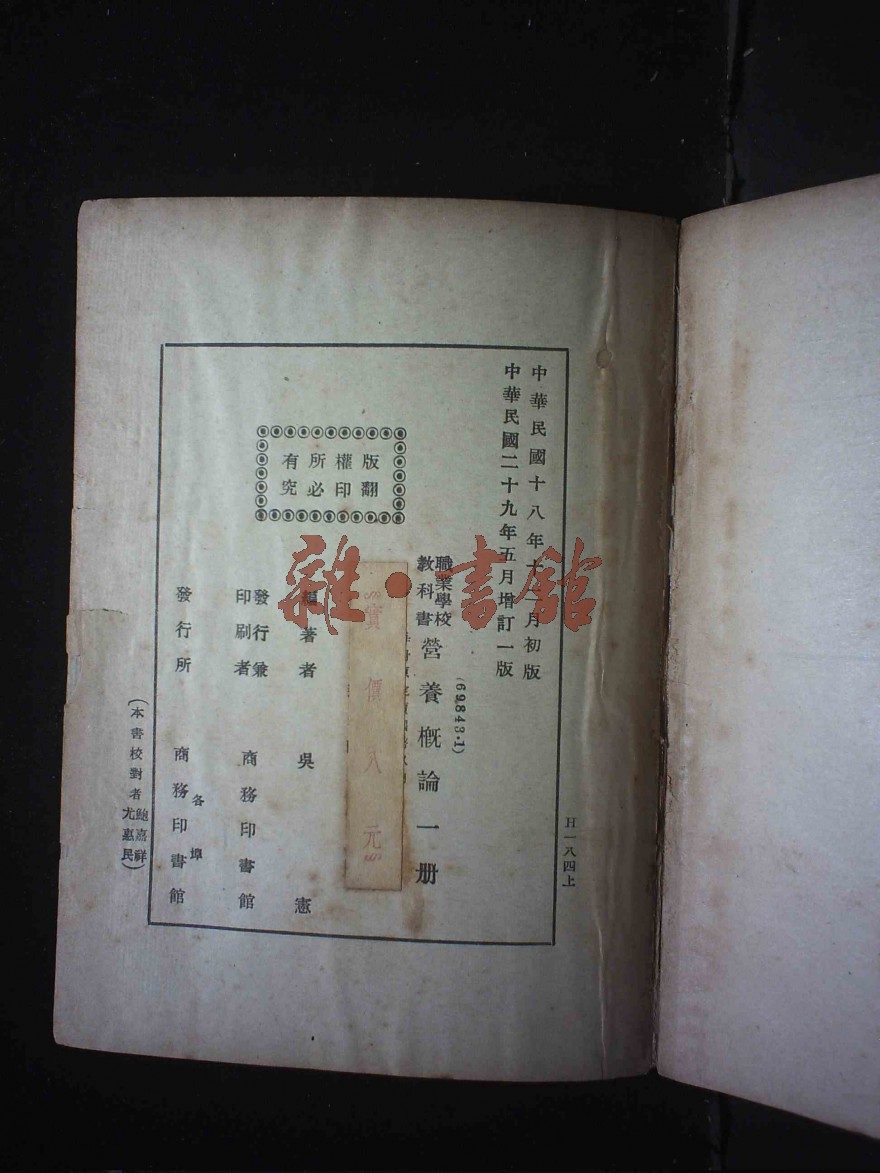 中華民國十八年十二月初版
中華民國二十九年五月增訂一版
H一八四上
(69843·1)
職業學校
教科書
營養概論一册
實價八元
版權所有
翻印必究
編著者 吳憲
發行兼
印刷者
商務印書館
發行所
各埠
商務印書館
(本書校對者鮑嘉祥
尤惠民)
雜·書館